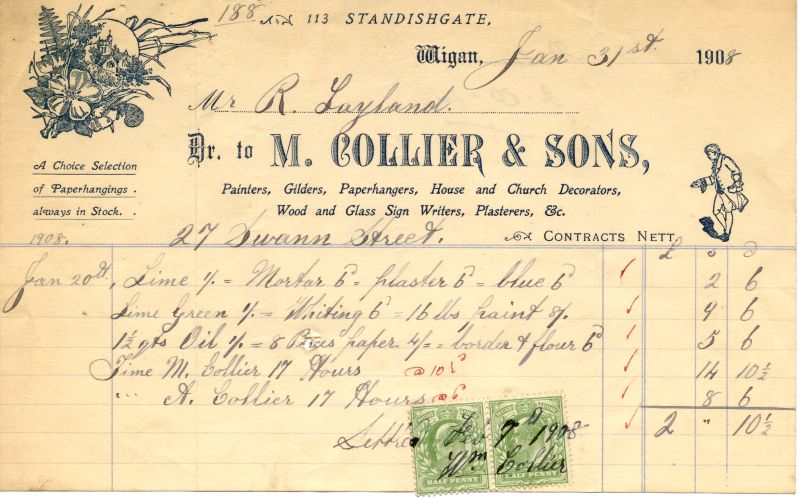 188
113 STANDISHGATE,
Wigan, Jan 31st. 1908
Mr R. Layland.
Dr. to M. COLLIER & SONS,
A Choice Selection
of Paperhangings.
always in Stock.
Painters, Gilders, Paperhangers, House and Church Decorators,
Wood and Glass Sign Writers, Plasterers, &c.
27 Swann Street.
CONTRACTS NETT.
1908. £ s D
Jan 20th, Lime 1/- = Mortar 6d = plaster 6d = blue 6d 2 6
Lime Green 1/- = Whiting 6d = 16 lbs paint 8/- 9 6
1½ qts Oil 1/- = 8 Pices paper 4/- = border & flour 6d 5 6
Time M. Collier 17 Hours @ 10½d 14 10½
" A. Collier 17 Hours @ 6d 8 6
2 " 10½
Settled Feb 7th 1908
Wm Collier
HALF PENNY HALF PENNY